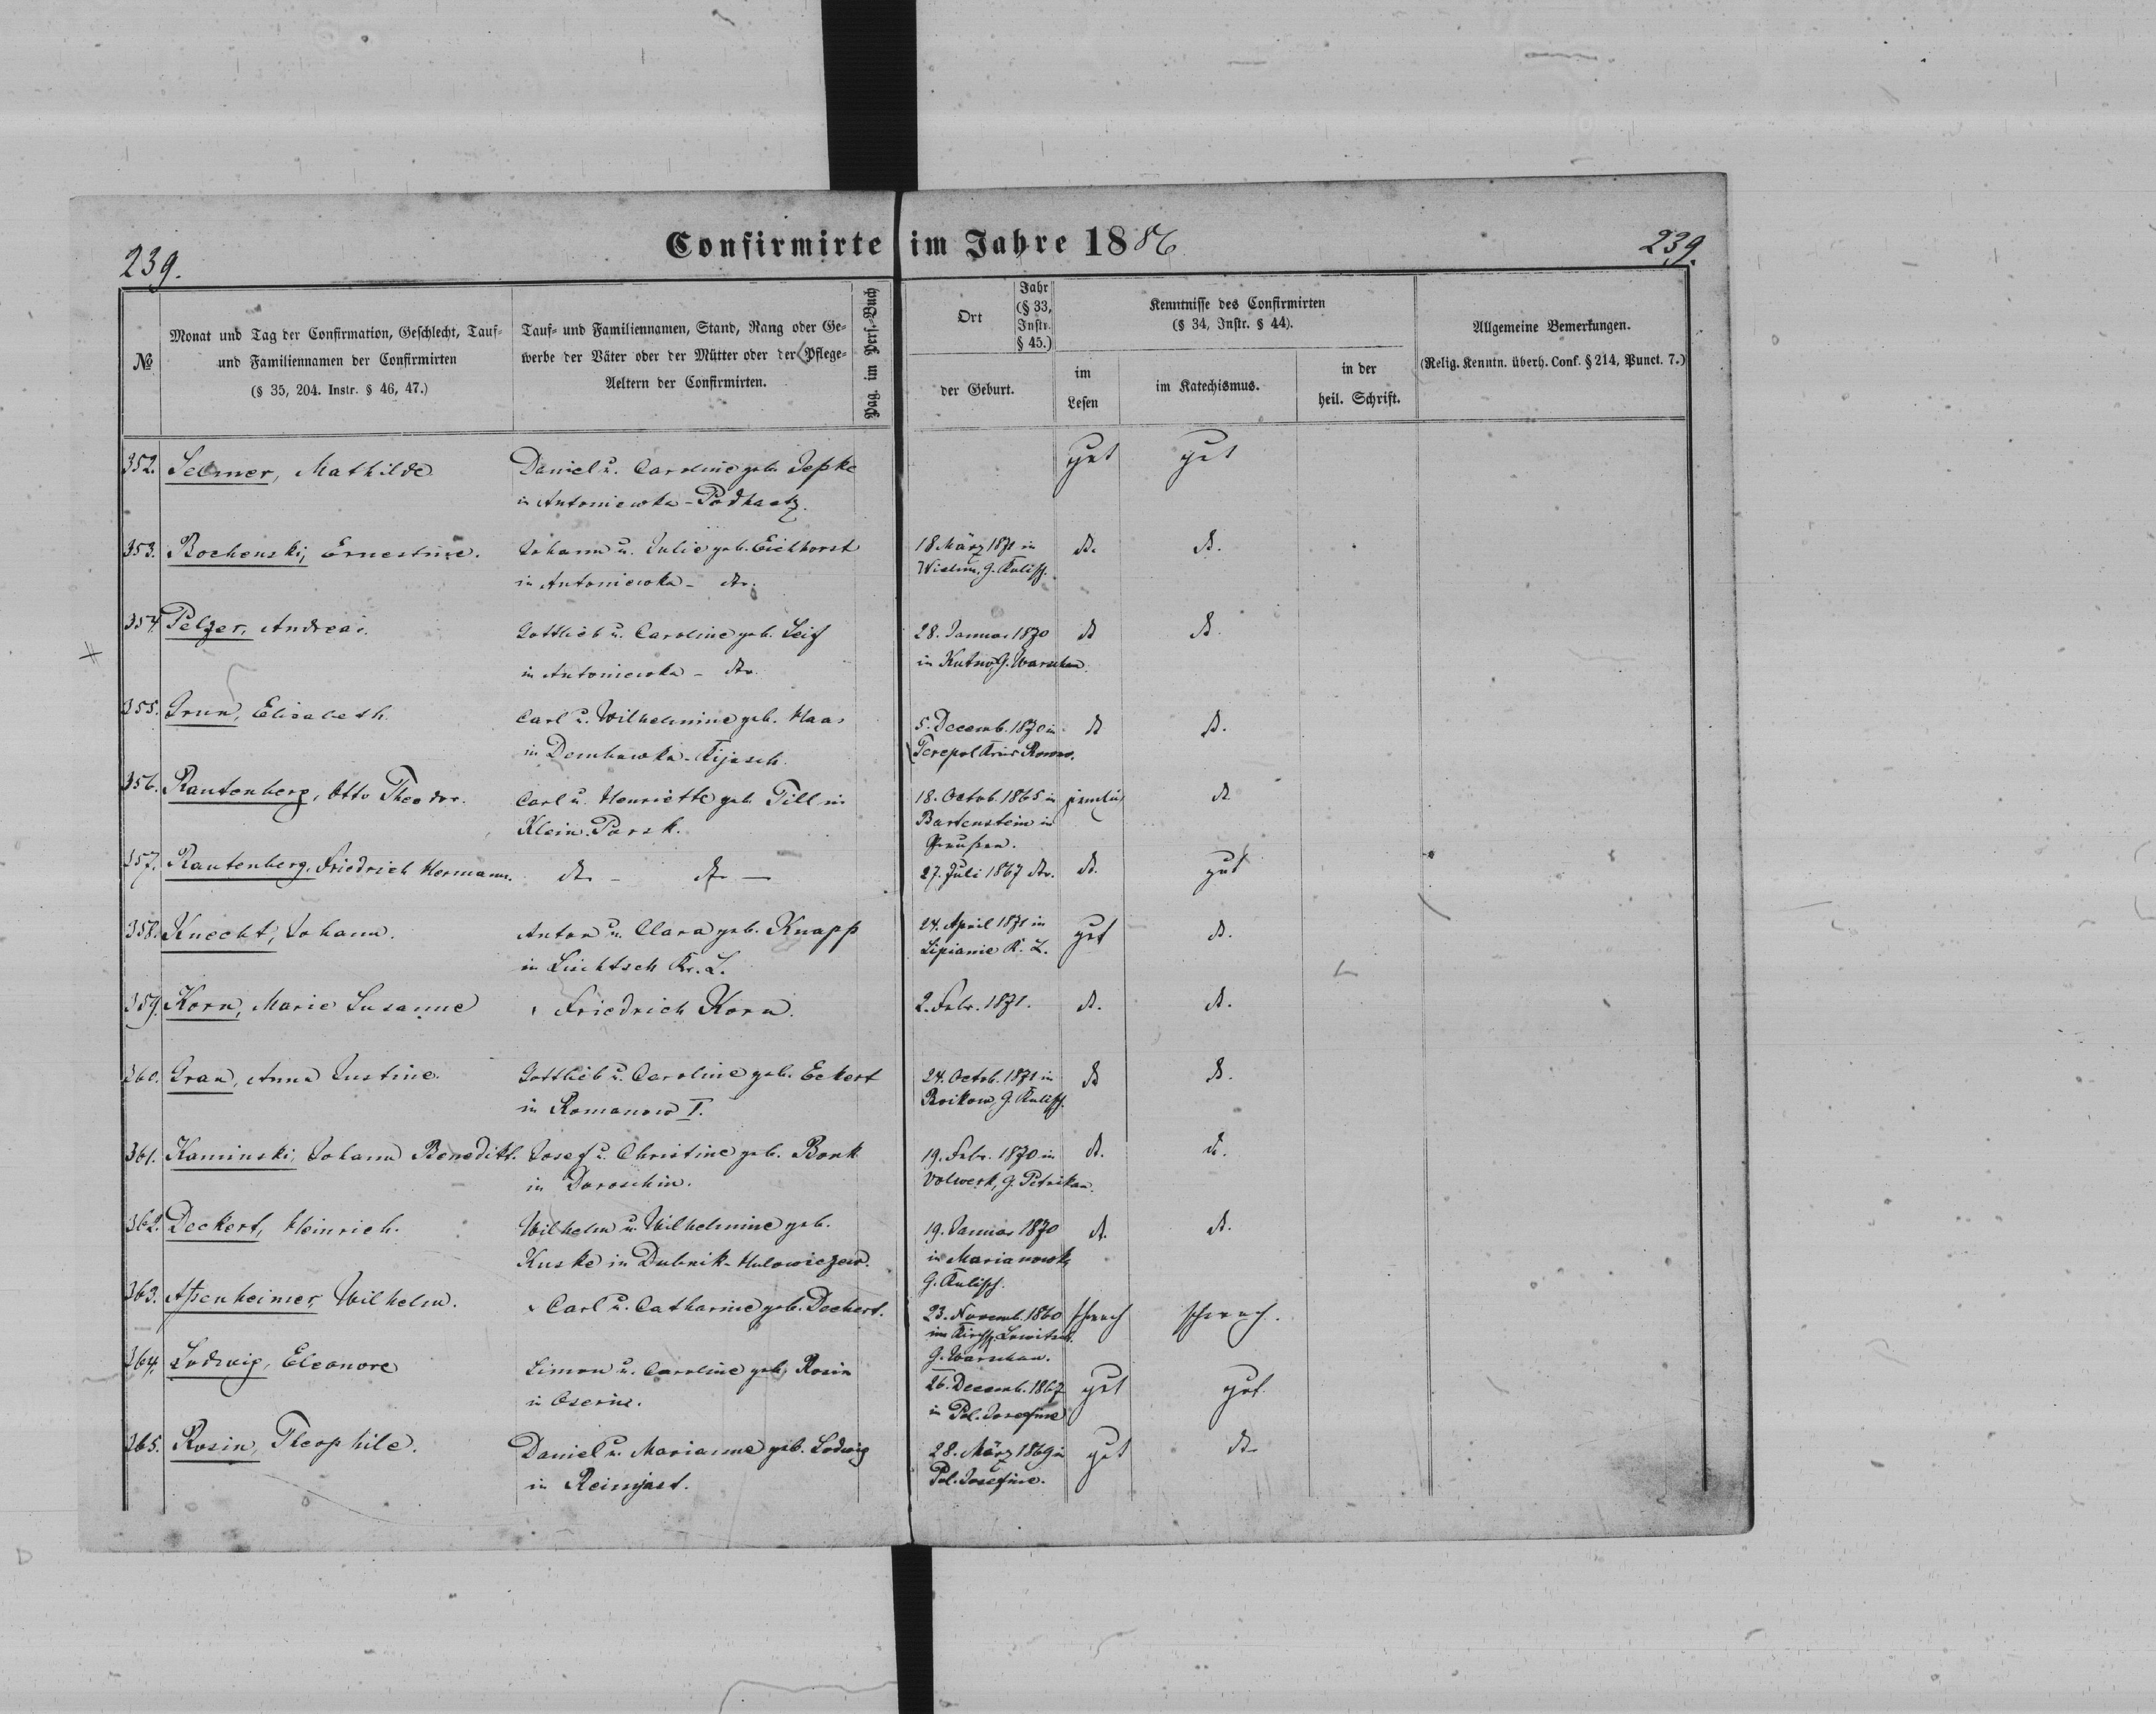 239.
Confirmirte im Jahre 1886
239.
№
Monat und Tag der Confirmation, Geschlecht, Tauf-
und Familiennamen der Confirmirten
(§ 35, 204. Instr. § 46, 47.)
Tauf- und Familiennamen, Stand, Rang oder Ge-
werbe der Väter oder der Mütter oder der Pflege-
Aeltern der Confirmirten.
Pag. im Pers.-Buch
Ort
Jahr
(§ 33,
Instr.
§ 45.)
der Geburt.
Kenntnisse des Confirmirten
(§ 34, Instr. § 44).
im
Lesen
im Katechismus.
in der
heil. Schrift.
Allgemeine Bemerkungen.
(Relig. Kenntn. überh. Conf. § 214, Punct. 7.)
352. Selmer, Mathilde Daniel u. Caroline geb. Jepke gut gut
in Antoniewka-Podhaetz.
353. Rochenski, Ernestine. Johann u. Julie geb. Eichhorst 18. März 1871 in do. do.
in Antoniewka - do. Wielun, G. Kalisch.
354. Pelzer, Andreas. Gottlieb u. Caroline geb. Seif 28. Januar 1870 do do.
in Antoniewka - do. in Kutno, G. Warschau.
355. Grun, Elisabeth. Carl u. Wilhelmine geb. Haas 5. Decemb. 1870 in do do.
in Dembowka-Kijasch. Terepol Kreis Rowno.
356. Rautenberg, Otto Theodor. Carl u. Henriette geb. Till in 18. Octob. 1865 in ziemlich do
Klein. Parsk. Bartenstein in
Preußen.
357. Rautenberg, Friedrich Hermann. do - do - 27. Juli 1867 do. do. gut
358. Knecht, Johann. Anton u. Clara geb. Knapp 24. April 1871 in gut do.
in Kr. L. Lipianie K. L.
359. Korn, Marie Susanne Friedrich Korn. 2. Febr. 1871. do. do.
360. Grau, Anna Justine. Gottlieb u. Caroline geb. Eckert 24. Octob. 1871 in do do.
in Romanow I. Boikow, G. Kalisch.
361. Kaminski, Johann Benedikt. Josef u. Christine geb. Bonk 19. Febr. 1870 in do. do.
in Doroschin. Volwerk, G. Petrikau.
362. Deckert, Heinrich. Wilhelm u. Wilhelmine geb. 19. Januar 1870 do. do.
Kuske in Dubnik-Hulowiczew. in Marianowka
G. Kalisch.
363. Assenheimer, Wilhelm. Carl u. Catharine geb. Deckert. 23. Novemb. 1860 schwach schwach.
im Kirchsp.
G. Warschau.
364. Ludwig, Eleonore Simon u. Caroline geb. Rosin 26. Decemb. 1867 gut gut
in Oserin. in Pol. Josefine
365. Rosin, Theophile. Daniel u. Marianne geb. Ludwig 28. März 1869 in gut do
in Pol. Josefine.